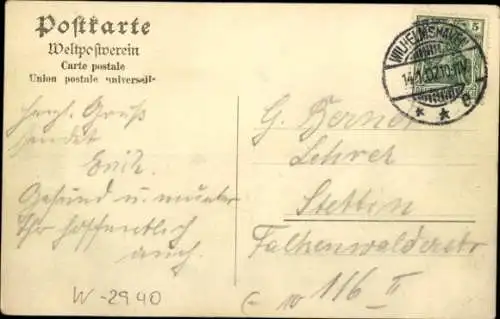 Postkarte
Weltpostverein
Carte postale
Union postale universelle
5
WILHELMSHAVEN
14.1.07.10-11V.
* c *
Herzl. Gruß
sendet
Erich.
Gesund u. munter
Ihr hoffentlich
auch.
G. Berndt
Lehrer
Stettin
Falkenwalderstr
116 II
W-2940